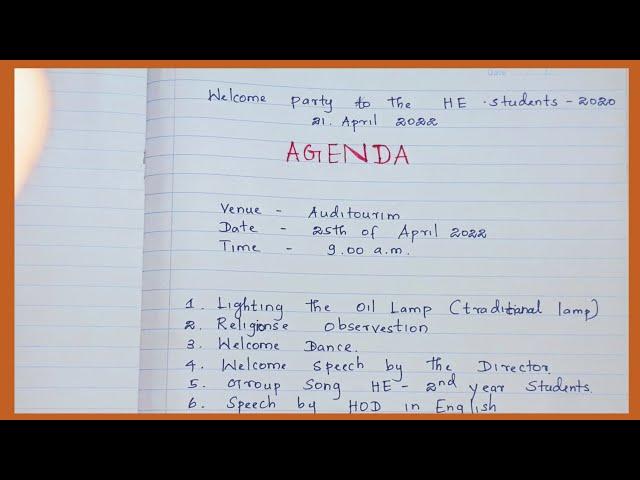 Date
Welcome party to the HE students - 2020
21. April 2022
AGENDA
Venue - Auditourim
Date - 25th of April 2022
Time - 9.00 a.m.
1. Lighting the oil Lamp (traditional lamp)
2. Religionse observestion
3. Welcome Dance.
4. Welcome speech by the Director.
5. Group Song HE - 2nd year Students.
6. Speech by HOD in English